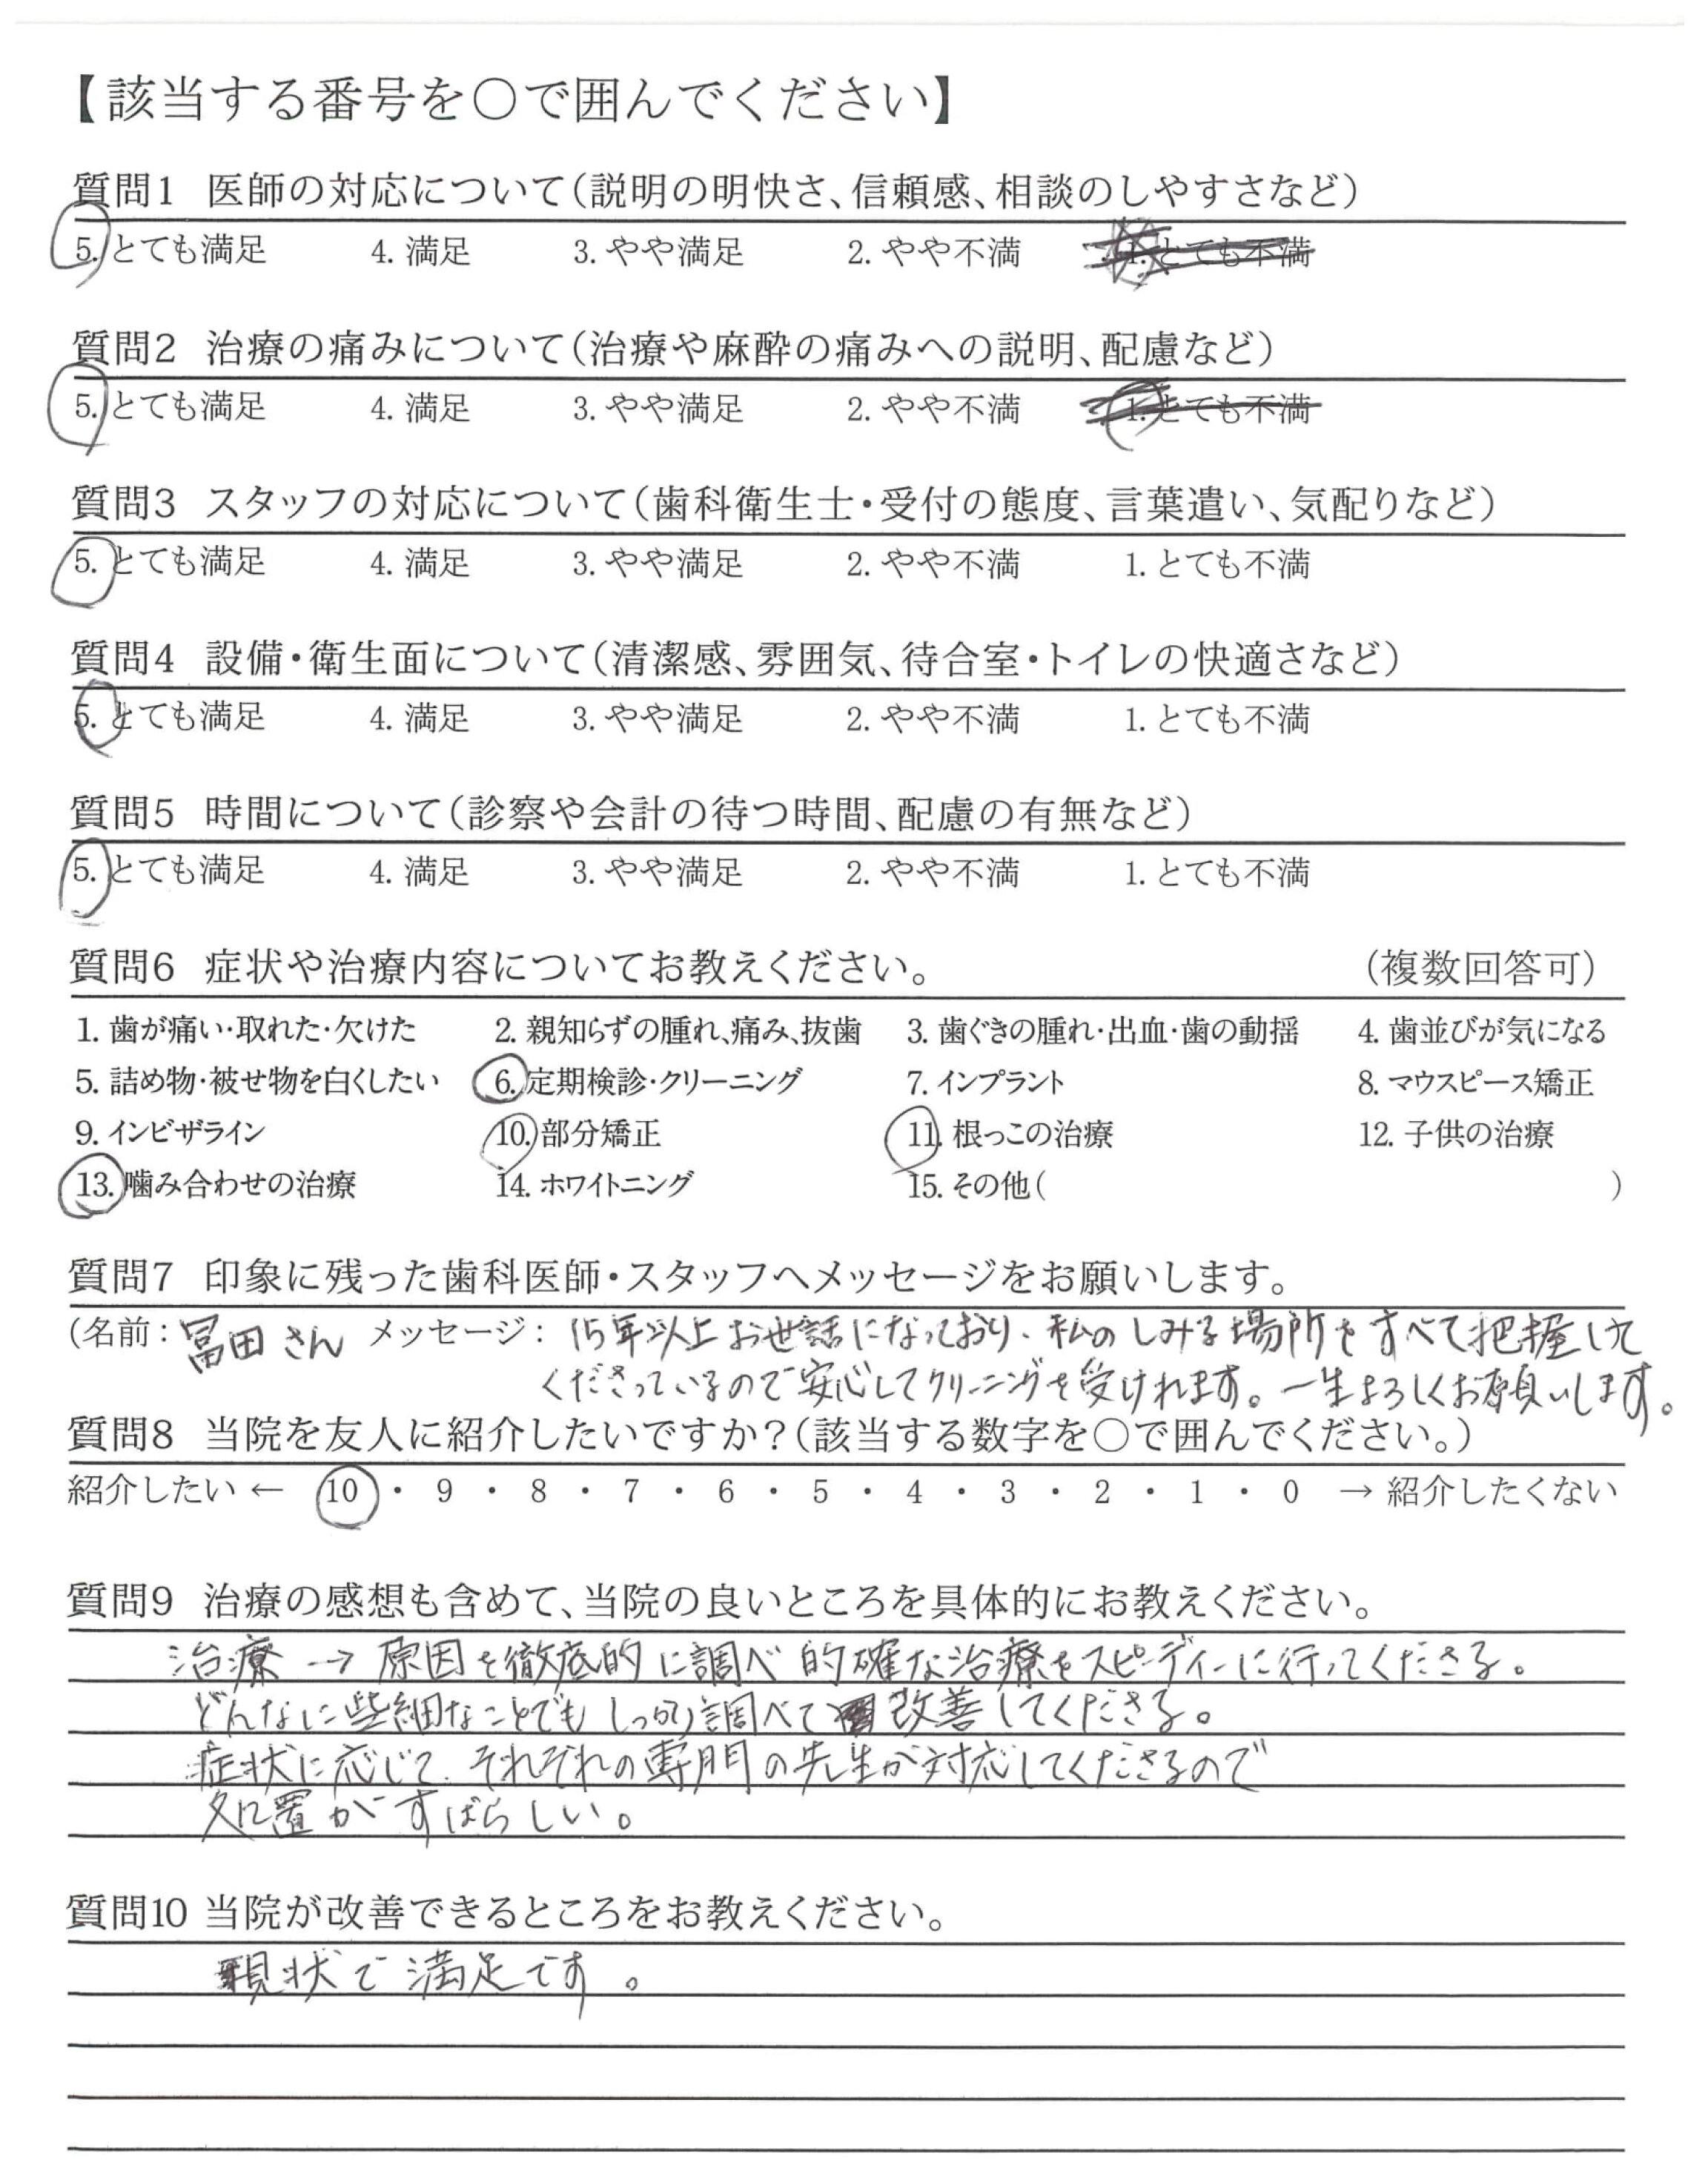 【該当する番号を〇で囲んでください】
質問1 医師の対応について(説明の明快さ、信頼感、相談のしやすさなど)
5. とても満足 4. 満足 3. やや満足 2. やや不満 1. とても不満
質問2 治療の痛みについて(治療や麻酔の痛みへの説明、配慮など)
5. とても満足 4. 満足 3. やや満足 2. やや不満 1. とても不満
質問3 スタッフの対応について(歯科衛生士・受付の態度、言葉遣い、気配りなど)
5. とても満足 4. 満足 3. やや満足 2. やや不満 1. とても不満
質問4 設備・衛生面について(清潔感、雰囲気、待合室・トイレの快適さなど)
5. とても満足 4. 満足 3. やや満足 2. やや不満 1. とても不満
質問5 時間について(診察や会計の待つ時間、配慮の有無など)
5. とても満足 4. 満足 3. やや満足 2. やや不満 1. とても不満
質問6 症状や治療内容についてお教えください。 (複数回答可)
1. 歯が痛い・取れた・欠けた 2. 親知らずの腫れ、痛み、抜歯 3. 歯ぐきの腫れ・出血・歯の動揺 4. 歯並びが気になる
5. 詰め物・被せ物を白くしたい 6. 定期検診・クリーニング 7. インプラント 8. マウスピース矯正
9. インビザライン 10. 部分矯正 11. 根っこの治療 12. 子供の治療
13. 噛み合わせの治療 14. ホワイトニング 15. その他( )
質問7 印象に残った歯科医師・スタッフへメッセージをお願いします。
(名前: 冨田さん メッセージ: 15年以上お世話になっており、私のしみる場所をすべて把握して
くださっているので安心してクリーニングを受けれます。一生よろしくお願いします。
質問8 当院を友人に紹介したいですか?(該当する数字を〇で囲んでください。)
紹介したい ← 10 ・ 9 ・ 8 ・ 7 ・ 6 ・ 5 ・ 4 ・ 3 ・ 2 ・ 1 ・ 0 → 紹介したくない
質問9 治療の感想も含めて、当院の良いところを具体的にお教えください。
治療 → 原因を徹底的に調べ的確な治療をスピーディーに行ってくださる。
どんなに些細なことでもしっかり調べて改善してくださる。
症状に応じて、それぞれの専門の先生が対応してくださるので
処置がすばらしい。
質問10 当院が改善できるところをお教えください。
現状で満足です。